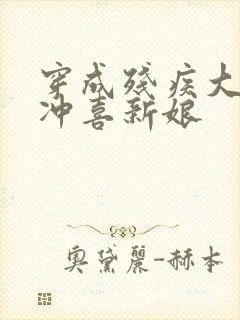 穿成残疾大
冲喜新娘
奥黛丽-赫本